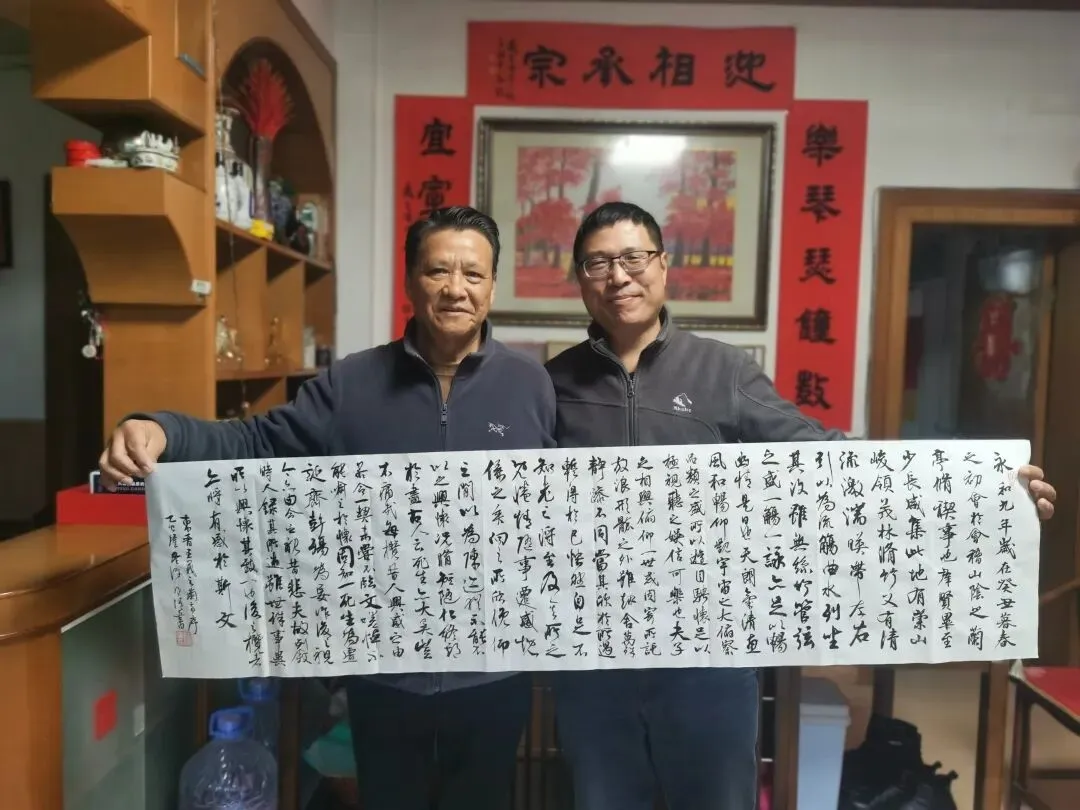 迎相承宗
樂琴瑟鐘數
宜
永和九年歲在癸丑暮春
之初會於會稽山陰之蘭
亭脩禊事也群賢畢至
少長咸集此地有崇山
峻領茂林脩竹又有清
流激湍暎帶左右
引以為流觴曲水列坐
其次雖無絲竹管弦
之盛一觴一詠亦足以暢
幽情是日也天朗氣清惠
風和暢仰觀宇宙之大俯察
品類之盛所以遊目騁懷足以
極視聽之娛信可樂也夫人
之相與俯仰一世或因寄所託
放浪形骸之外雖趣舍萬殊
靜躁不同當其欣於所遇
暫得於己怏然自足不
知老之將至及其所之
既惓情隨事遷感慨
係之矣向之所欣俛仰
之間以為陳迹猶不能不
以之興懷況脩短隨化終期
於盡古人云死生亦大矣豈
不痛哉每攬昔人興感之由
若合一契未嘗不臨文嗟悼不
能喻之於懷固知死生為虛
誕齊彭殤為妄作後之視
今亦由今之視昔悲夫故列敘
時人錄其所述雖世殊事異
所以興懷其致一也後之攬者
亦將有感於斯文